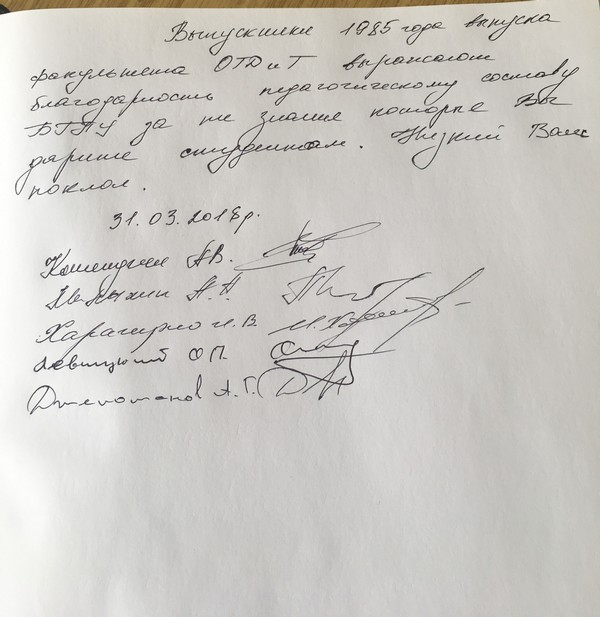 Выпускники 1985 года выпуска
факультета ОТДиТ выражают
благодарность педагогическому составу
БГПУ за те знание которые Вы
дарите студентам. Низкий Вам
поклон.
31.03.2018г.
А.В.
А.А.
Харачирло И.В.
Левицкий О.П.
А.Г.